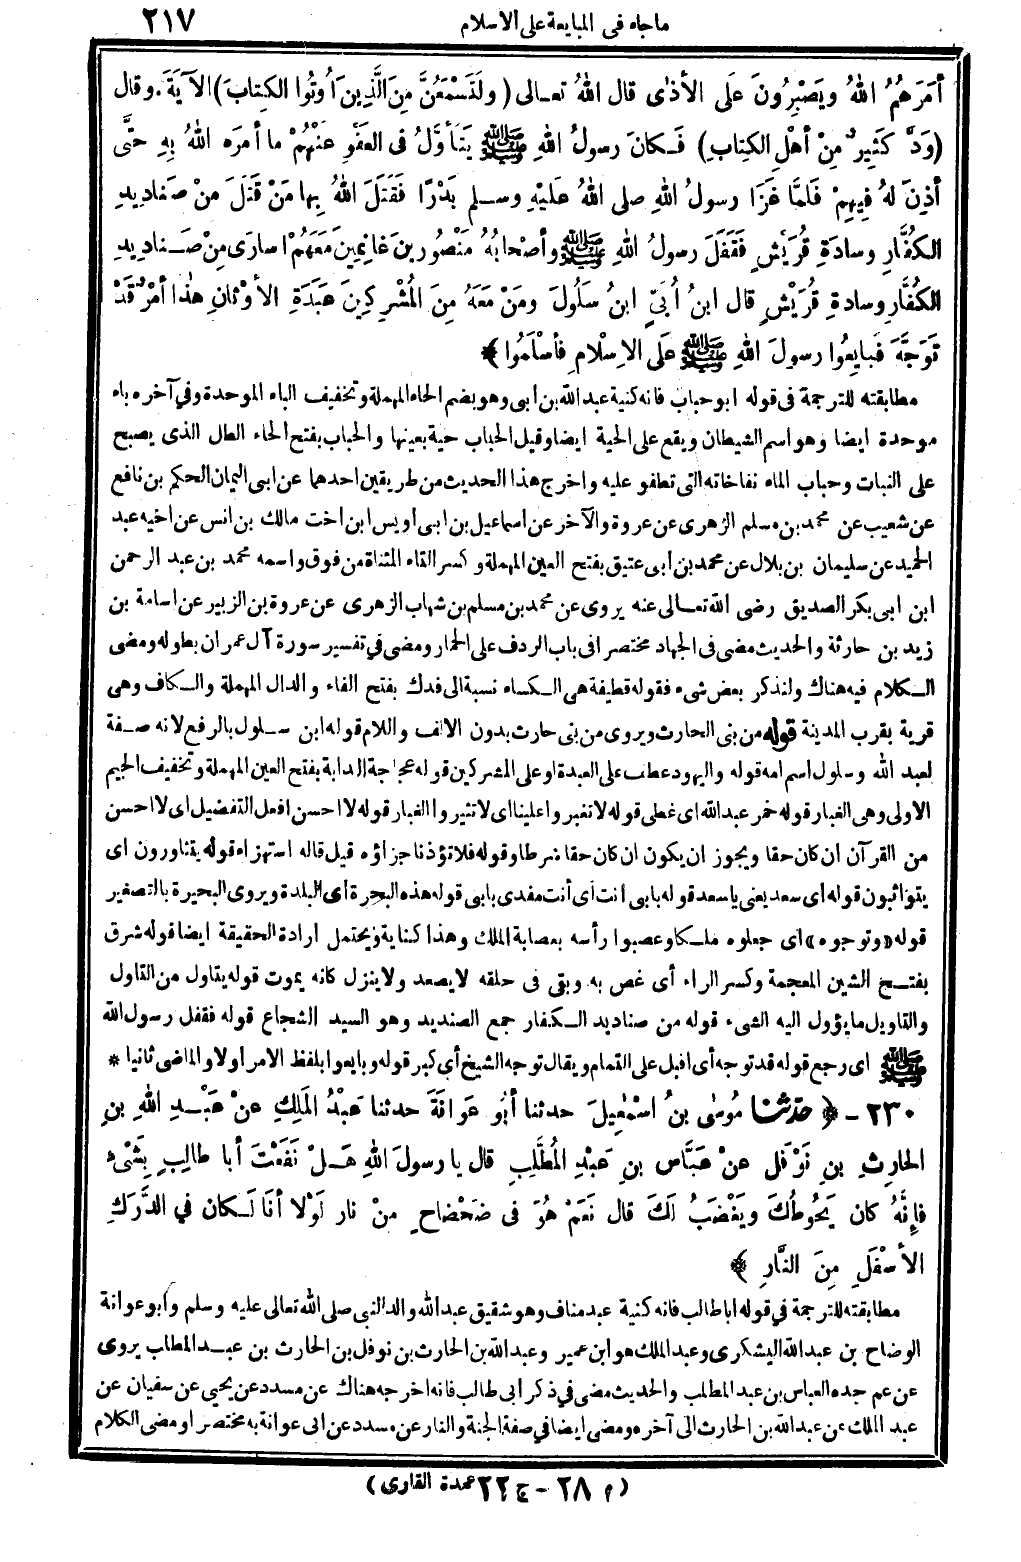 ماجاء فى المبايعة على الاسلام ٢١٧
أَمَرَهُمُ اللهُ ويَصْبِرُونَ عَلَى الأذَى قال اللهُ تعالى (ولَتَسْمَعُنَّ مِنَ الَّذِينَ أُوتُوا الكِتابَ) الآيَةَ. وقال
(وَدَّ كَثِيرٌ مِنْ أهْلِ الكِتابِ) فَكانَ رسولُ اللهِ ﷺ يَتَأَوَّلُ فى العَفْوِ عَنْهُمْ ما أمَرَه اللهُ بِهِ حتَّى
أذِنَ لهُ فِيهِمْ فَلمَّا غَزَا رسولُ اللهِ صلى اللهُ عَلَيْهِ وسلم بَدْرًا فَقَتَلَ اللهُ بِها مَنْ قَتَلَ مِنْ صَنادِيدِ
الكُفَّارِ وسادَةِ قُرَيْشٍ فَقَفَلَ رسولُ اللهِ ﷺ وأصْحابُهُ مَنْصُورِينَ غانِمِينَ مَعَهُمْ أسارَى مِنْ صَنادِيدِ
الكُفَّارِ وسادةِ قُرَيْشٍ قال ابنُ أُبَيٍّ ابنُ سَلُولَ ومَنْ مَعَهُ مِنَ المُشْرِكِينَ عَبَدَةِ الأوْثانِ هٰذا أمْرٌ قَدْ
تَوَجَّهَ فَبايِعُوا رسولَ اللهِ ﷺ عَلَى الاِسْلامِ فأسْلَمُوا ﴾
مطابقته للترجمة فى قوله ابو حباب فانه كنية عبد الله بن أبى وهو بضم الحاء المهملة وتخفيف الباء الموحدة وفي آخره باء
موحدة ايضا وهو اسم الشيطان ويقع على الحية ايضا وقيل الحباب حية بعينها والحباب بفتح الحاء الطل الذى يصبح
على النبات وحباب الماء نفاخاته التى تطفو عليه واخرج هذا الحديث من طريقين احدهما عن ابى اليمان الحكم بن نافع
عن شعيب عن محمد بن مسلم الزهرى عن عروة والآخر عن اسماعيل بن ابى أويس ابن اخت مالك بن انس عن اخيه عبد
الحميد عن سليمان بن بلال عن محمد بن أبى عتيق بفتح العين المهملة وكسر التاء المثناة من فوق واسمه محمد بن عبد الرحمن
ابن ابى بكر الصديق رضى الله تعالى عنه يروى عن محمد بن مسلم بن شهاب الزهرى عن عروة بن الزبير عن اسامة بن
زيد بن حارثة والحديث مضى فى الجهاد مختصرا فى باب الردف على الحمار ومضى في تفسير سورة آل عمران بطوله ومضى
الكلام فيه هناك ولنذكر بعض شىء فقوله قطيفة هى الكساء نسبة الى فدك بفتح الفاء والدال المهملة والكاف وهى
قرية بقرب المدينة قوله من بنى الحارث ويروى من بنى حارث بدون الالف واللام قوله ابن سلول بالرفع لانه صفة
لعبد الله وسلول اسم امه قوله واليهود عطف على العبدة او على المشركين قوله عجاجة الدابة بفتح العين المهملة وتخفيف الجيم
الاولى وهى الغبار قوله خمر عبد الله اى غطى قوله لا تغبروا علينا اى لا تثيروا الغبار قوله لا احسن افعل التفضيل اى لا احسن
من القرآن ان كان حقا ويجوز ان يكون ان كان حقا شرطا وقوله فلا تؤذنا جزاؤه قيل قاله استهزاء قوله يتثاورون اى
يتواثبون قوله أى سعد يعنى يا سعد قوله بابى انت أى أنت مفدى بابى قوله هذه البحرة أى البلدة ويروى البحيرة بالتصغير
قوله «وتوجوه» اى جعلوه ملكا وعصبوا رأسه بعصابة الملك وهذا كناية ويحتمل ارادة الحقيقة ايضا قوله شرق
بفتح الشين المعجمة وكسر الراء أى غص به وبقى فى حلقه لا يصعد ولا ينزل كانه يموت قوله يتاول من التاول
والتاويل ما يؤول اليه الشىء قوله من صناديد الكفار جمع الصنديد وهو السيد الشجاع قوله فقفل رسول الله
ﷺ اى رجع قوله قد توجه أى اقبل على التمام ويقال توجه الشيخ أى كبر قوله وبايعوا بلفظ الامر أولا والماضى ثانيا *
٢٣٠ - ﴿ حدثنا مُوسَى بنُ اسْمٰعِيلَ حدثنا أبُو عَوانَةَ حدثنا عَبْدُ المَلِكِ عنْ عَبْدِ اللهِ بنِ
الحارِثِ بنِ نَوْفَلٍ عنْ عَبَّاسِ بنِ عَبْدِ المُطَّلِبِ قال يا رسولَ اللهِ هَلْ نَفَعْتَ أبا طالِبٍ بِشَىْءٍ
فإنَّهُ كان يَحُوطُكَ ويَغْضَبُ لَكَ قال نَعَمْ هُوَ فى ضَحْضاحٍ مِنْ نارٍ لَوْلا أنَا لَكان في الدَّرَكِ
الأسْفَلِ مِنَ النَّارِ ﴾
مطابقته للترجمة في قوله ابا طالب فانه كنية عبد مناف وهو شقيق عبد الله والد النبى صلى الله تعالى عليه وسلم وابو عوانة
الوضاح بن عبد الله اليشكرى وعبد الملك هو ابن عمير وعبد الله بن الحارث بن نوفل بن الحارث بن عبد المطلب يروى
عن عم جده العباس بن عبد المطلب والحديث مضى في ذكر ابى طالب فانه اخرجه هناك عن مسدد عن يحيى عن سفيان عن
عبد الملك عن عبد الله بن الحارث الى آخره ومضى ايضا فى صفة الجنة والنار عن مسدد عن ابى عوانة به مختصرا ومضى الكلام
(م ٢٨ - ج ٢٢ عمدة القارى)